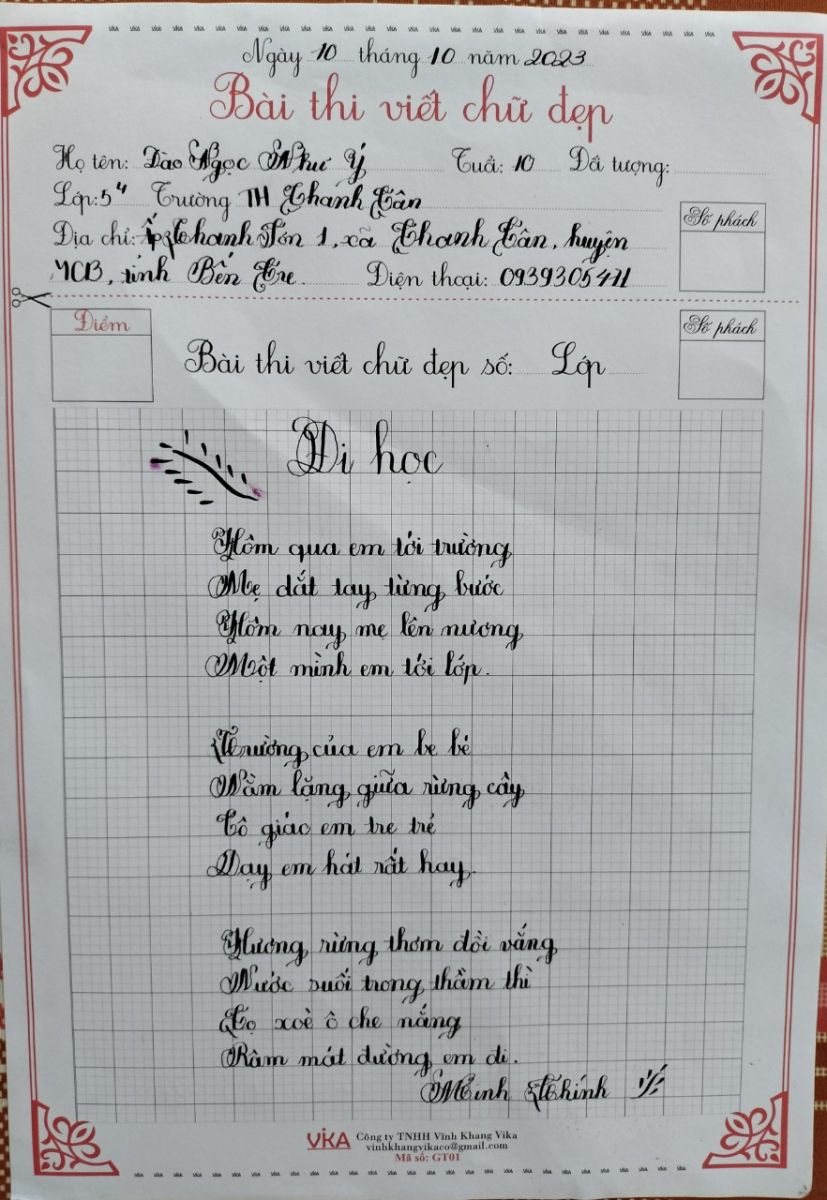 Ngày 10 tháng 10 năm 2023
Bài thi viết chữ đẹp
Họ tên: Đào Ngọc Như Ý Tuổi: 10 Đối tượng:
Lớp: 5⁴ Trường TH Thành Tân
Địa chỉ: Ấp Thanh Tôn 1, xã Thanh Tân, huyện
MCB, tỉnh Bến Tre. Điện thoại: 0939305411
Số phách
Điểm
Bài thi viết chữ đẹp số: Lớp
Số phách
Đi học
Hôm qua em tới trường
Mẹ dắt tay từng bước
Hôm nay mẹ lên nương
Một mình em tới lớp.
Trường của em be bé
Nằm lặng giữa rừng cây
Cô giáo em tre trẻ
Dạy em hát rất hay.
Hương rừng thơm đồi vắng
Nước suối trong thầm thì
Cọ xoè ô che nắng
Râm mát đường em đi.
Minh Chính
VIKA Công ty TNHH Vĩnh Khang Vika
vinhkhangvikaco@gmail.com
Mã số: GT01